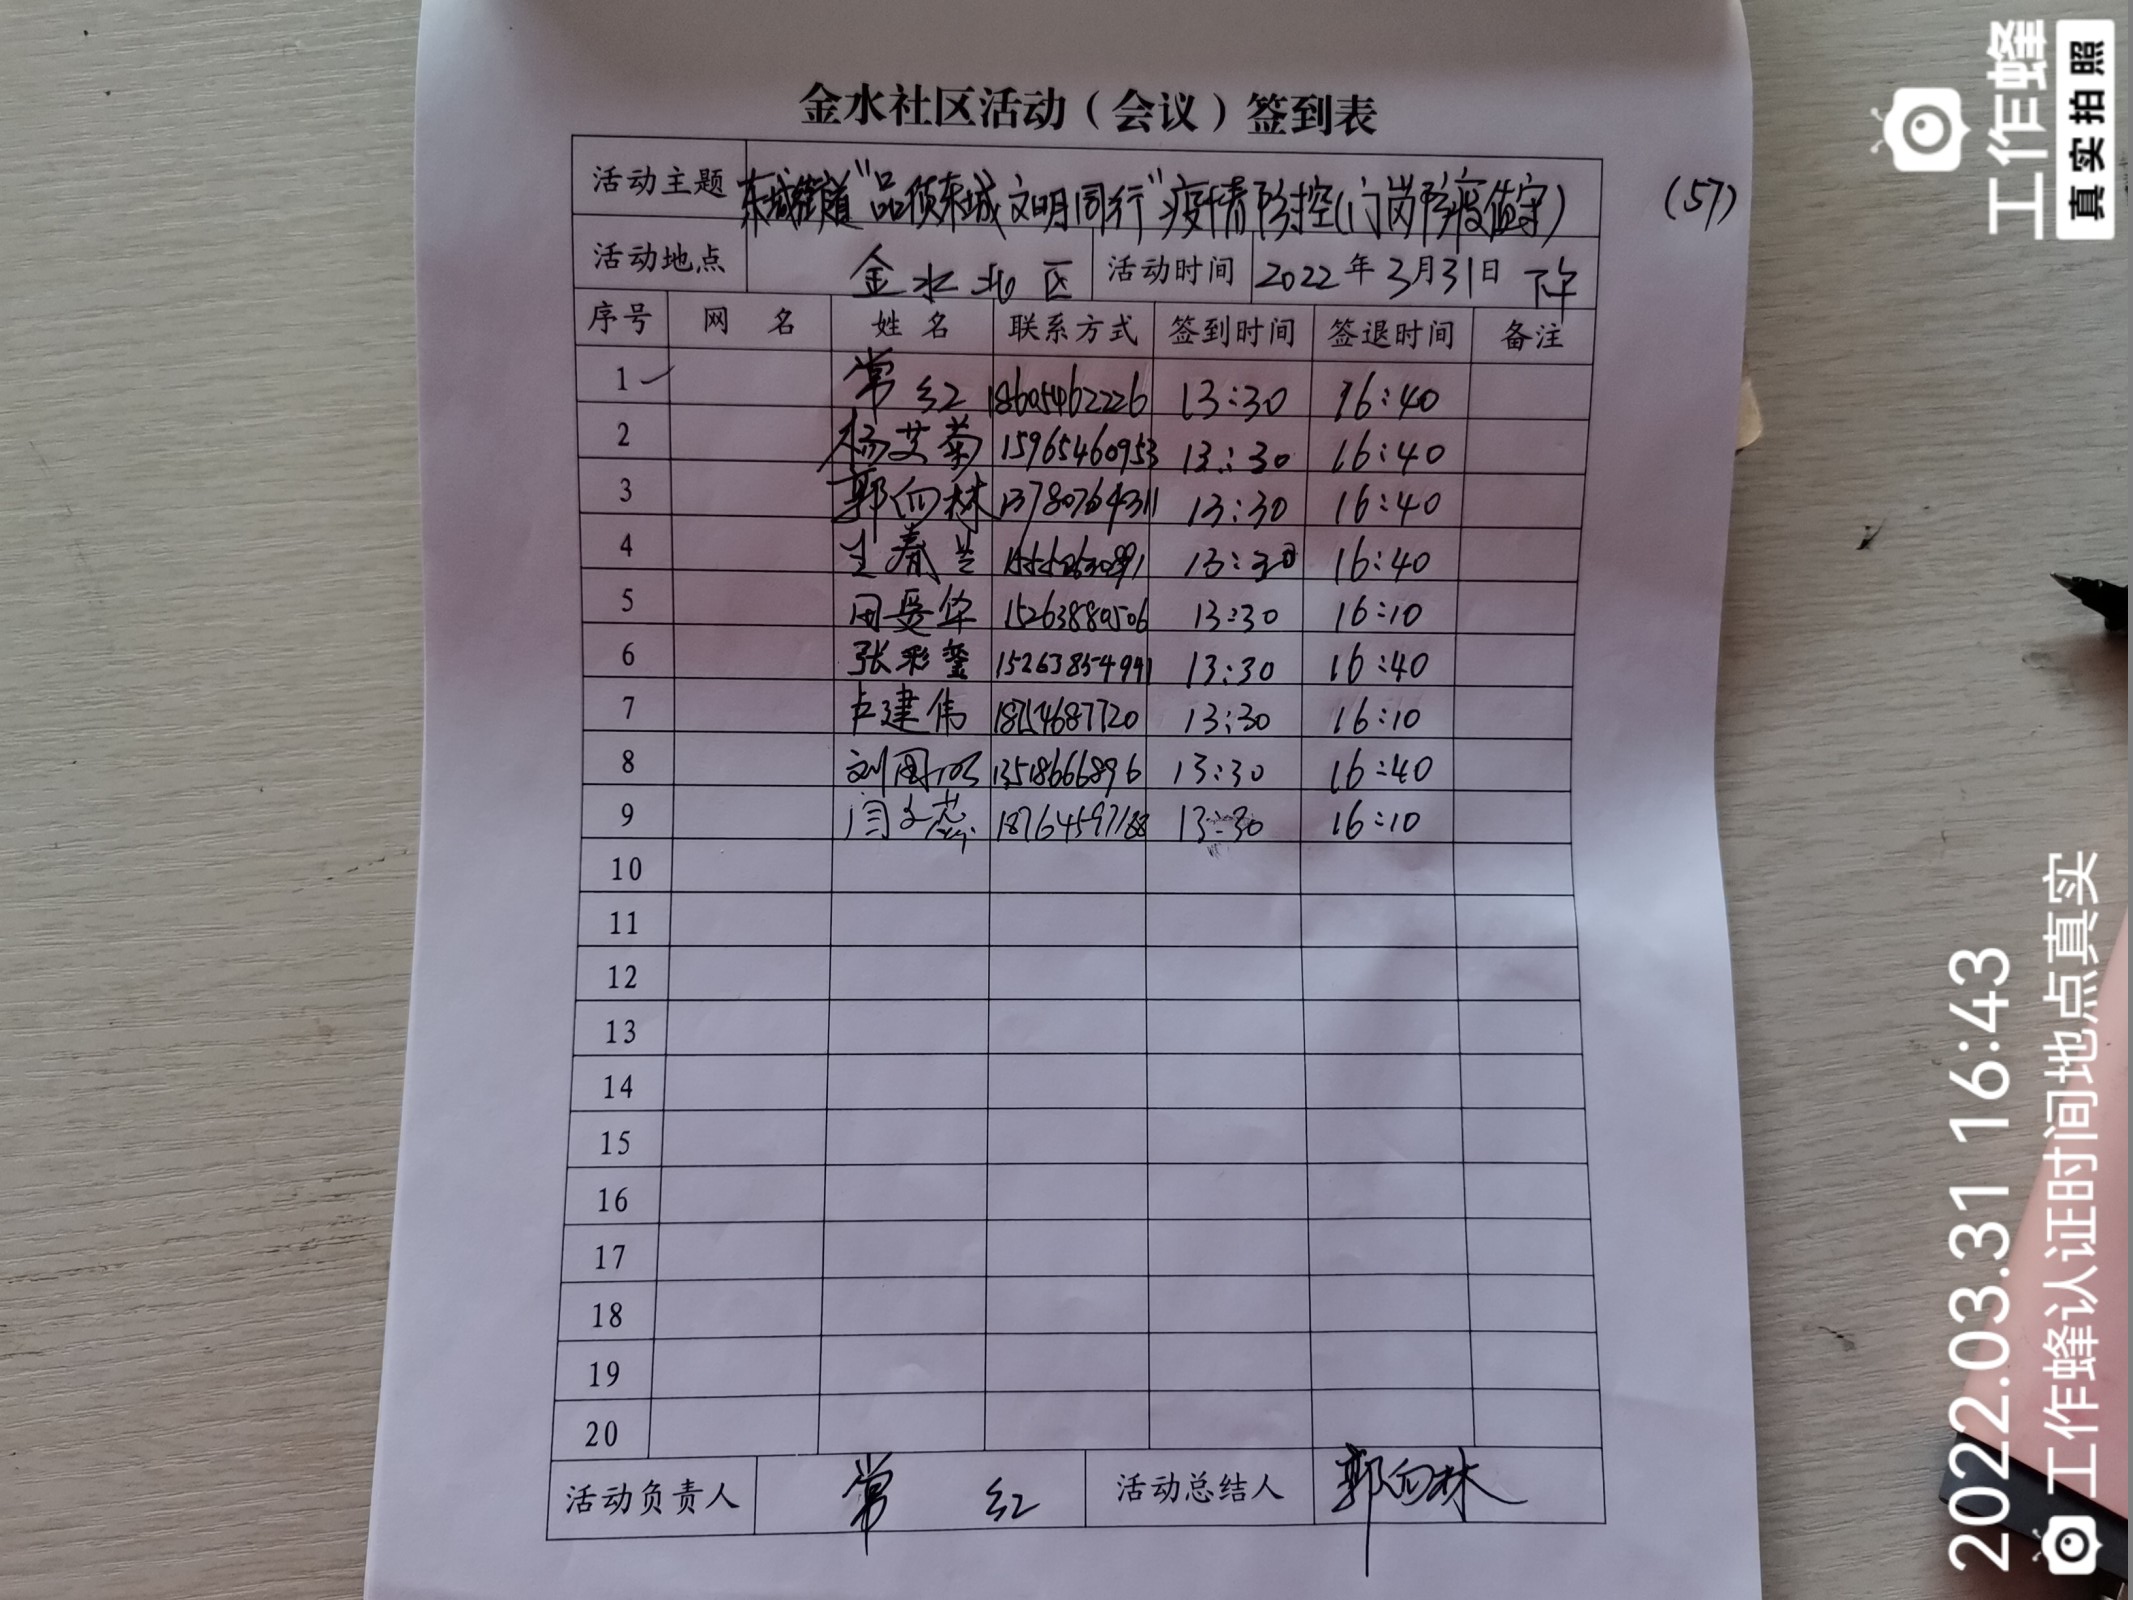 金水社区活动（会议）签到表
活动主题 东城街道"品质东城 文明同行"疫情防控(门岗防疫值守)
(57)
活动地点 金水北区 活动时间 2022年3月31日 下午
序号 网 名 姓 名 联系方式 签到时间 签退时间 备注
1 常红 18605462226 13:30 16:40
2 杨艾菊 15965460953 13:30 16:40
3 郭向林 13780764311 13:30 16:40
4 王春兰 13:30 16:40
5 周爱华 15263880506 13:30 16:10
6 张彩 15263854991 13:30 16:40
7 卢建伟 18754687720 13:30 16:10
8 刘国 13518666896 13:30 16:40
9 闫文 18764597188 13:30 16:10
10
11
12
13
14
15
16
17
18
19
20
活动负责人 常 红 活动总结人 郭向林
工作蜂
真实拍照
2022.03.31 16:43
工作蜂认证时间地点真实